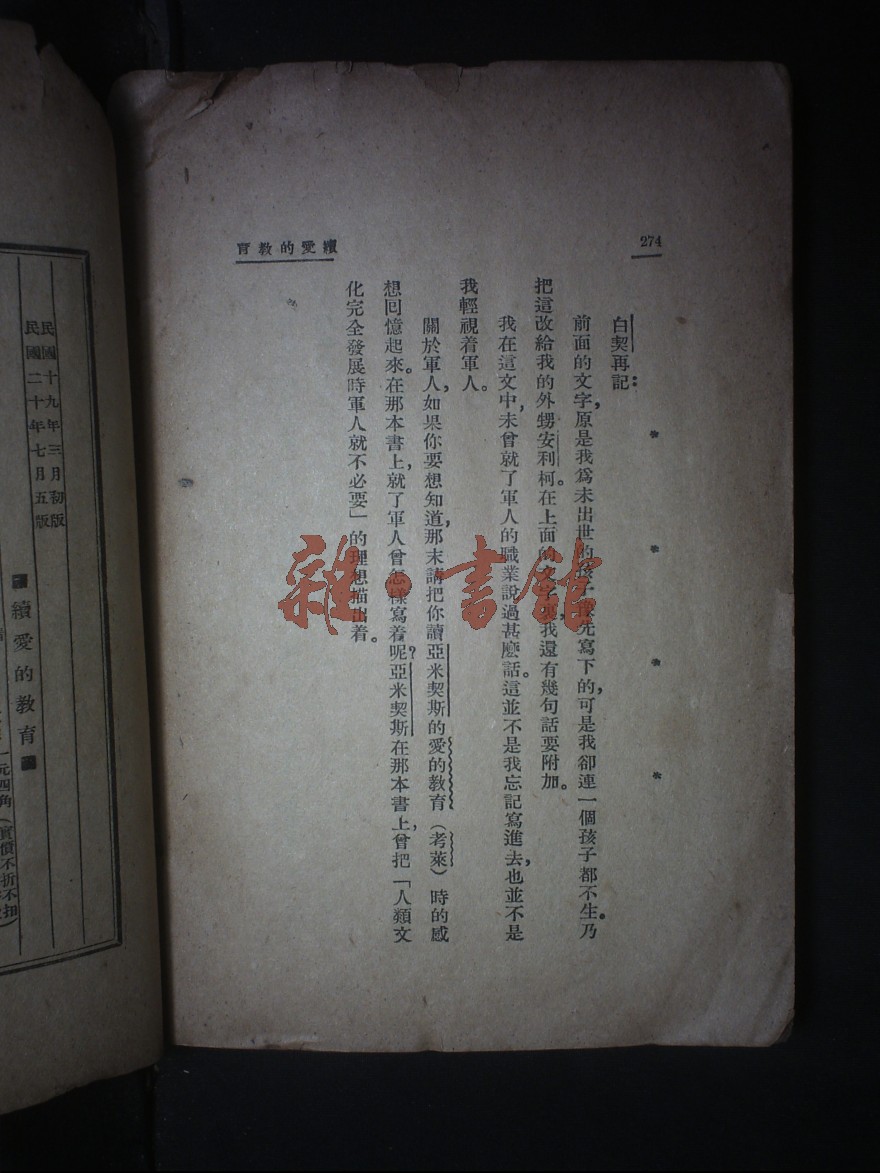 274
續愛的教育
白契再記：
前面的文字，原是我爲未出世的孩子預先寫下的，可是我卻連一個孩子都不生。乃
把這改給我的外甥安利柯。在上面的文字裏，我還有幾句話要附加。
我在這文中，未曾就了軍人的職業說過甚麽話。這並不是我忘記寫進去，也並不是
我輕視着軍人。
關於軍人，如果你要想知道，那末請把你讀亞米契斯的愛的教育（考萊）時的感
想回憶起來。在那本書上，就了軍人曾怎樣寫着呢？亞米契斯在那本書上，曾把「人類文
化完全發展時軍人就不必要」的理想描出着。
雜·書館
民國十九年三月初版
民國二十年七月五版
續愛的教育
元四角（實價不折不扣）